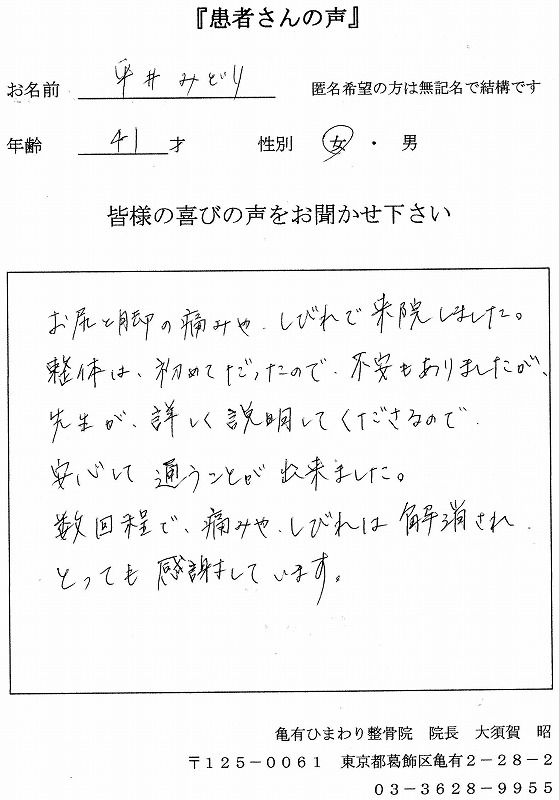 『患者さんの声』
お名前 平井みどり 匿名希望の方は無記名で結構です
年齢 41 才 性別 女 ・ 男
皆様の喜びの声をお聞かせ下さい
お尻と脚の痛みや、しびれで来院しました。
整体は、初めてだったので、不安もありましたが、
先生が、詳しく説明してくださるので、
安心して通うことが出来ました。
数回程で、痛みや、しびれは解消され、
とっても感謝しています。
亀有ひまわり整骨院 院長 大須賀 昭
〒125－0061 東京都葛飾区亀有2－28－2
03－3628－9955